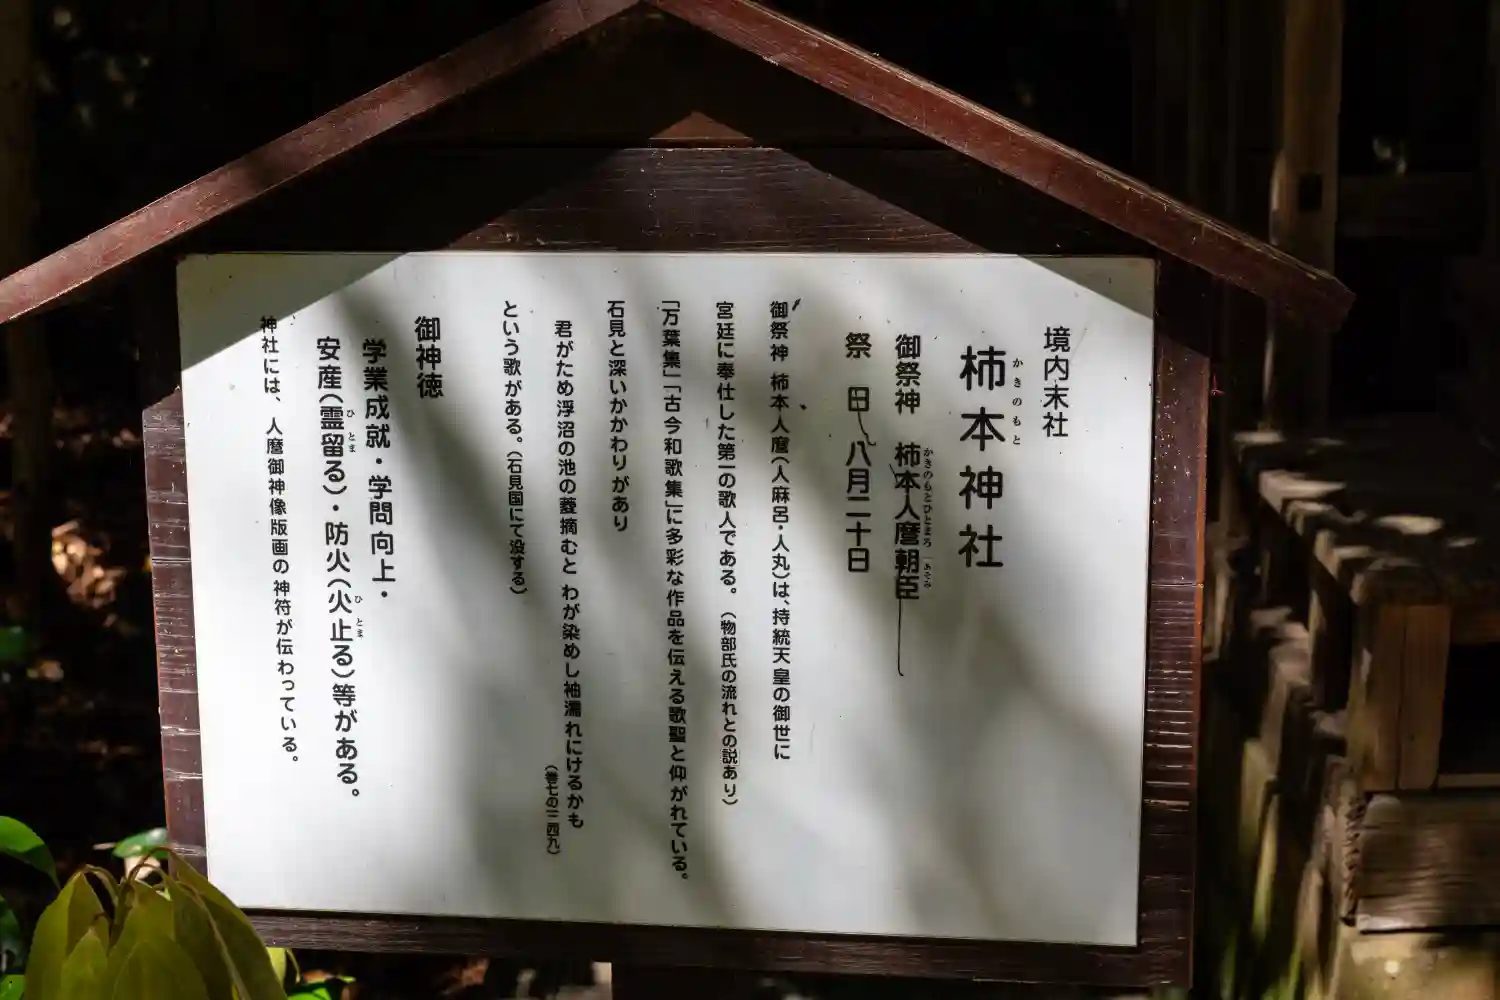 境内末社
柿本神社
かきのもと
御祭神 柿本人麿朝臣
かきのもとひとまろ あそみ
祭 日 八月二十日
御祭神 柿本人麿（人麻呂・人丸）は、持統天皇の御世に
宮廷に奉仕した第一の歌人である。（物部氏の流れとの説あり）
「万葉集」「古今和歌集」に多彩な作品を伝える歌聖と仰がれている。
石見と深いかかわりがあり
君がため浮沼の池の菱摘むと わが染めし袖濡れにけるかも
（巻七の一二四九）
という歌がある。（石見国にて没する）
御神徳
学業成就・学問向上・
安産（霊留る）・防火（火止る）等がある。
ひとま ひとま
神社には、人麿御神像版画の神符が伝わっている。